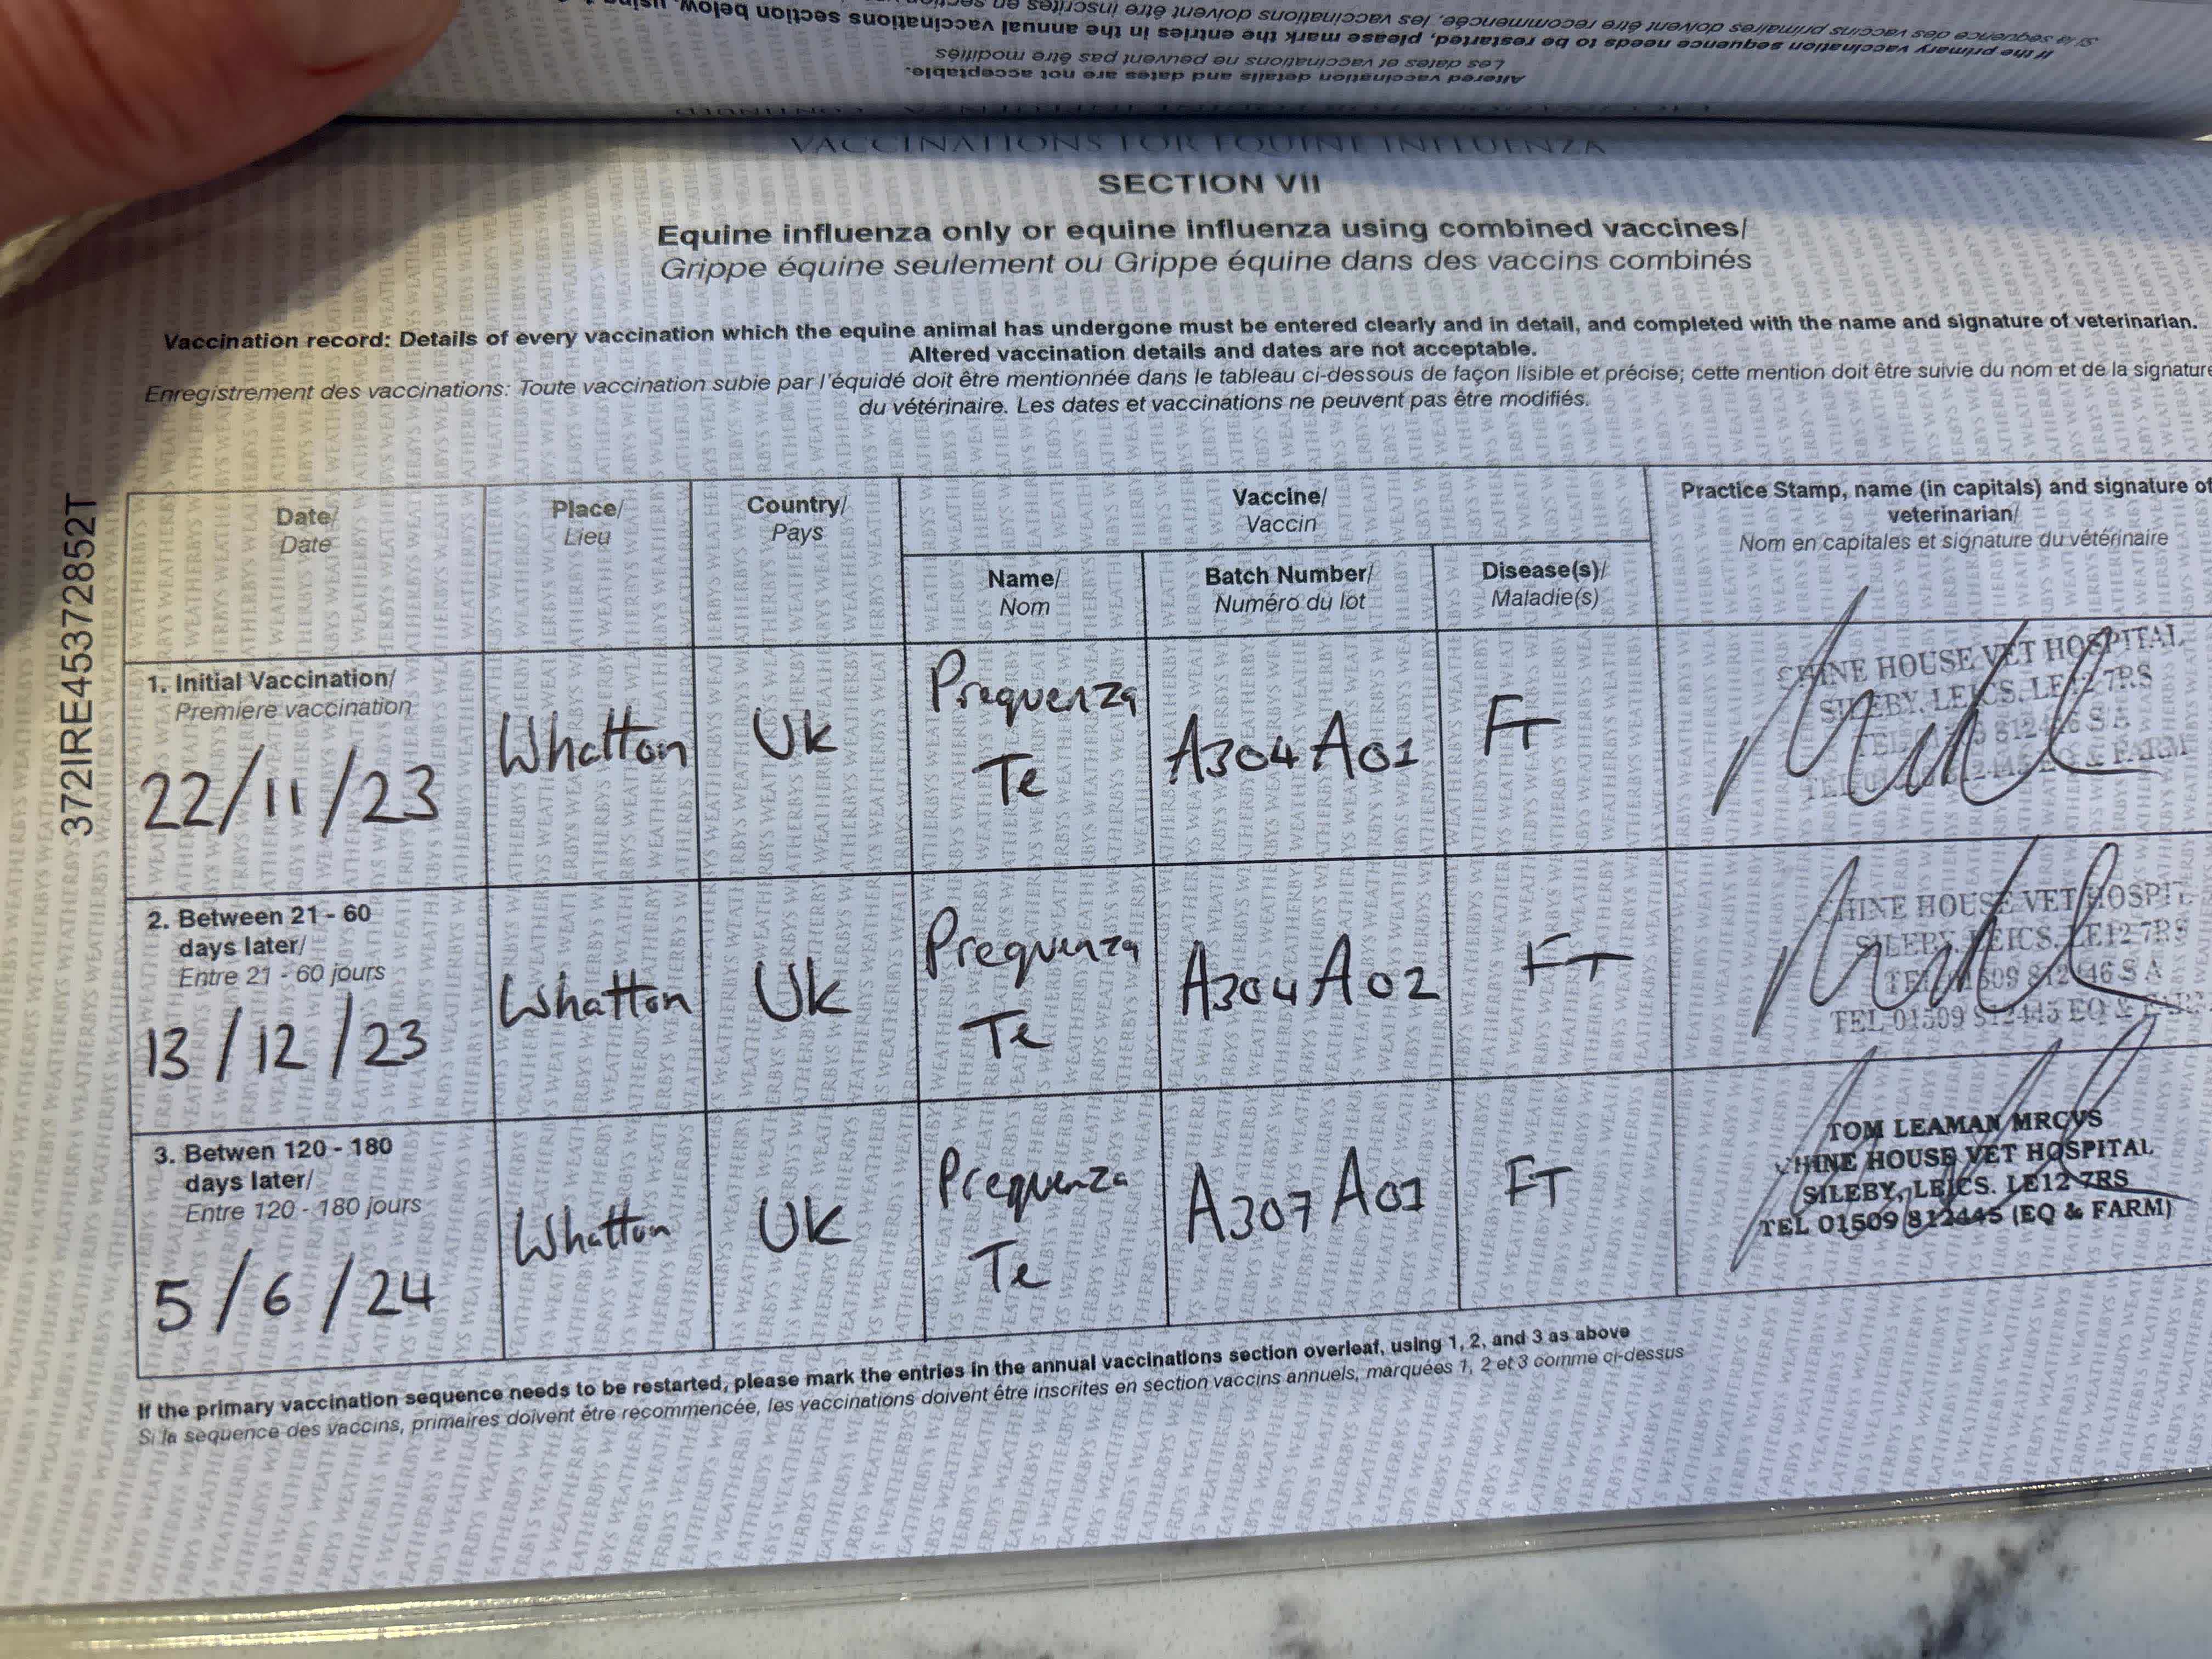 Si la séquence des vaccins primaires doivent être recommencée, les vaccinations doivent être inscrites en
If the primary vaccination sequence needs to be restarted, please mark the entries in the annual vaccinations section below, using
Les dates et vaccinations ne peuvent pas être modifiés
Altered vaccination details and dates are not acceptable.
VACCINATIONS FOR EQUINE INFLUENZA
SECTION VII
Equine influenza only or equine influenza using combined vaccines/
Grippe équine seulement ou Grippe équine dans des vaccins combinés
Vaccination record: Details of every vaccination which the equine animal has undergone must be entered clearly and in detail, and completed with the name and signature of veterinarian.
Altered vaccination details and dates are not acceptable.
Enregistrement des vaccinations: Toute vaccination subie par l'équidé doit être mentionnée dans le tableau ci-dessous de façon lisible et précise; cette mention doit être suivie du nom et de la signature
du vétérinaire. Les dates et vaccinations ne peuvent pas être modifiés.
372IRE45372852T
Date/
Date
Place/
Lieu
Country/
Pays
Vaccine/
Vaccin
Name/
Nom
Batch Number/
Numéro du lot
Disease(s)/
Maladie(s)
Practice Stamp, name (in capitals) and signature of
veterinarian/
Nom en capitales et signature du vétérinaire
1. Initial Vaccination/
Premiere vaccination
22/11/23
Whatton
Uk
Prequenza
Te
A304A01
FT
HOUSE VET HOSPITAL
SILEBY, LEICS. LE12 7RS
2. Between 21 - 60
days later/
Entre 21 - 60 jours
13/12/23
Whatton
Uk
Prequenza
Te
A304A02
FT
HOUSE VET
SILEBY, LEICS. LE12 7RS
TEL 01509 812445 EQ &
3. Betwen 120 - 180
days later/
Entre 120 - 180 jours
5/6/24
Whatton
Uk
Prequenza
Te
A307A01
FT
TOM LEAMAN MRCVS
HOUSE VET HOSPITAL
SILEBY, LEICS. LE12 7RS
TEL 01509 812445 (EQ & FARM)
If the primary vaccination sequence needs to be restarted, please mark the entries in the annual vaccinations section overleaf, using 1, 2, and 3 as above
Si la sequence des vaccins, primaires doivent être recommencée, les vaccinations doivent être inscrites en section vaccins annuels, marquées 1, 2 et 3 comme ci-dessus